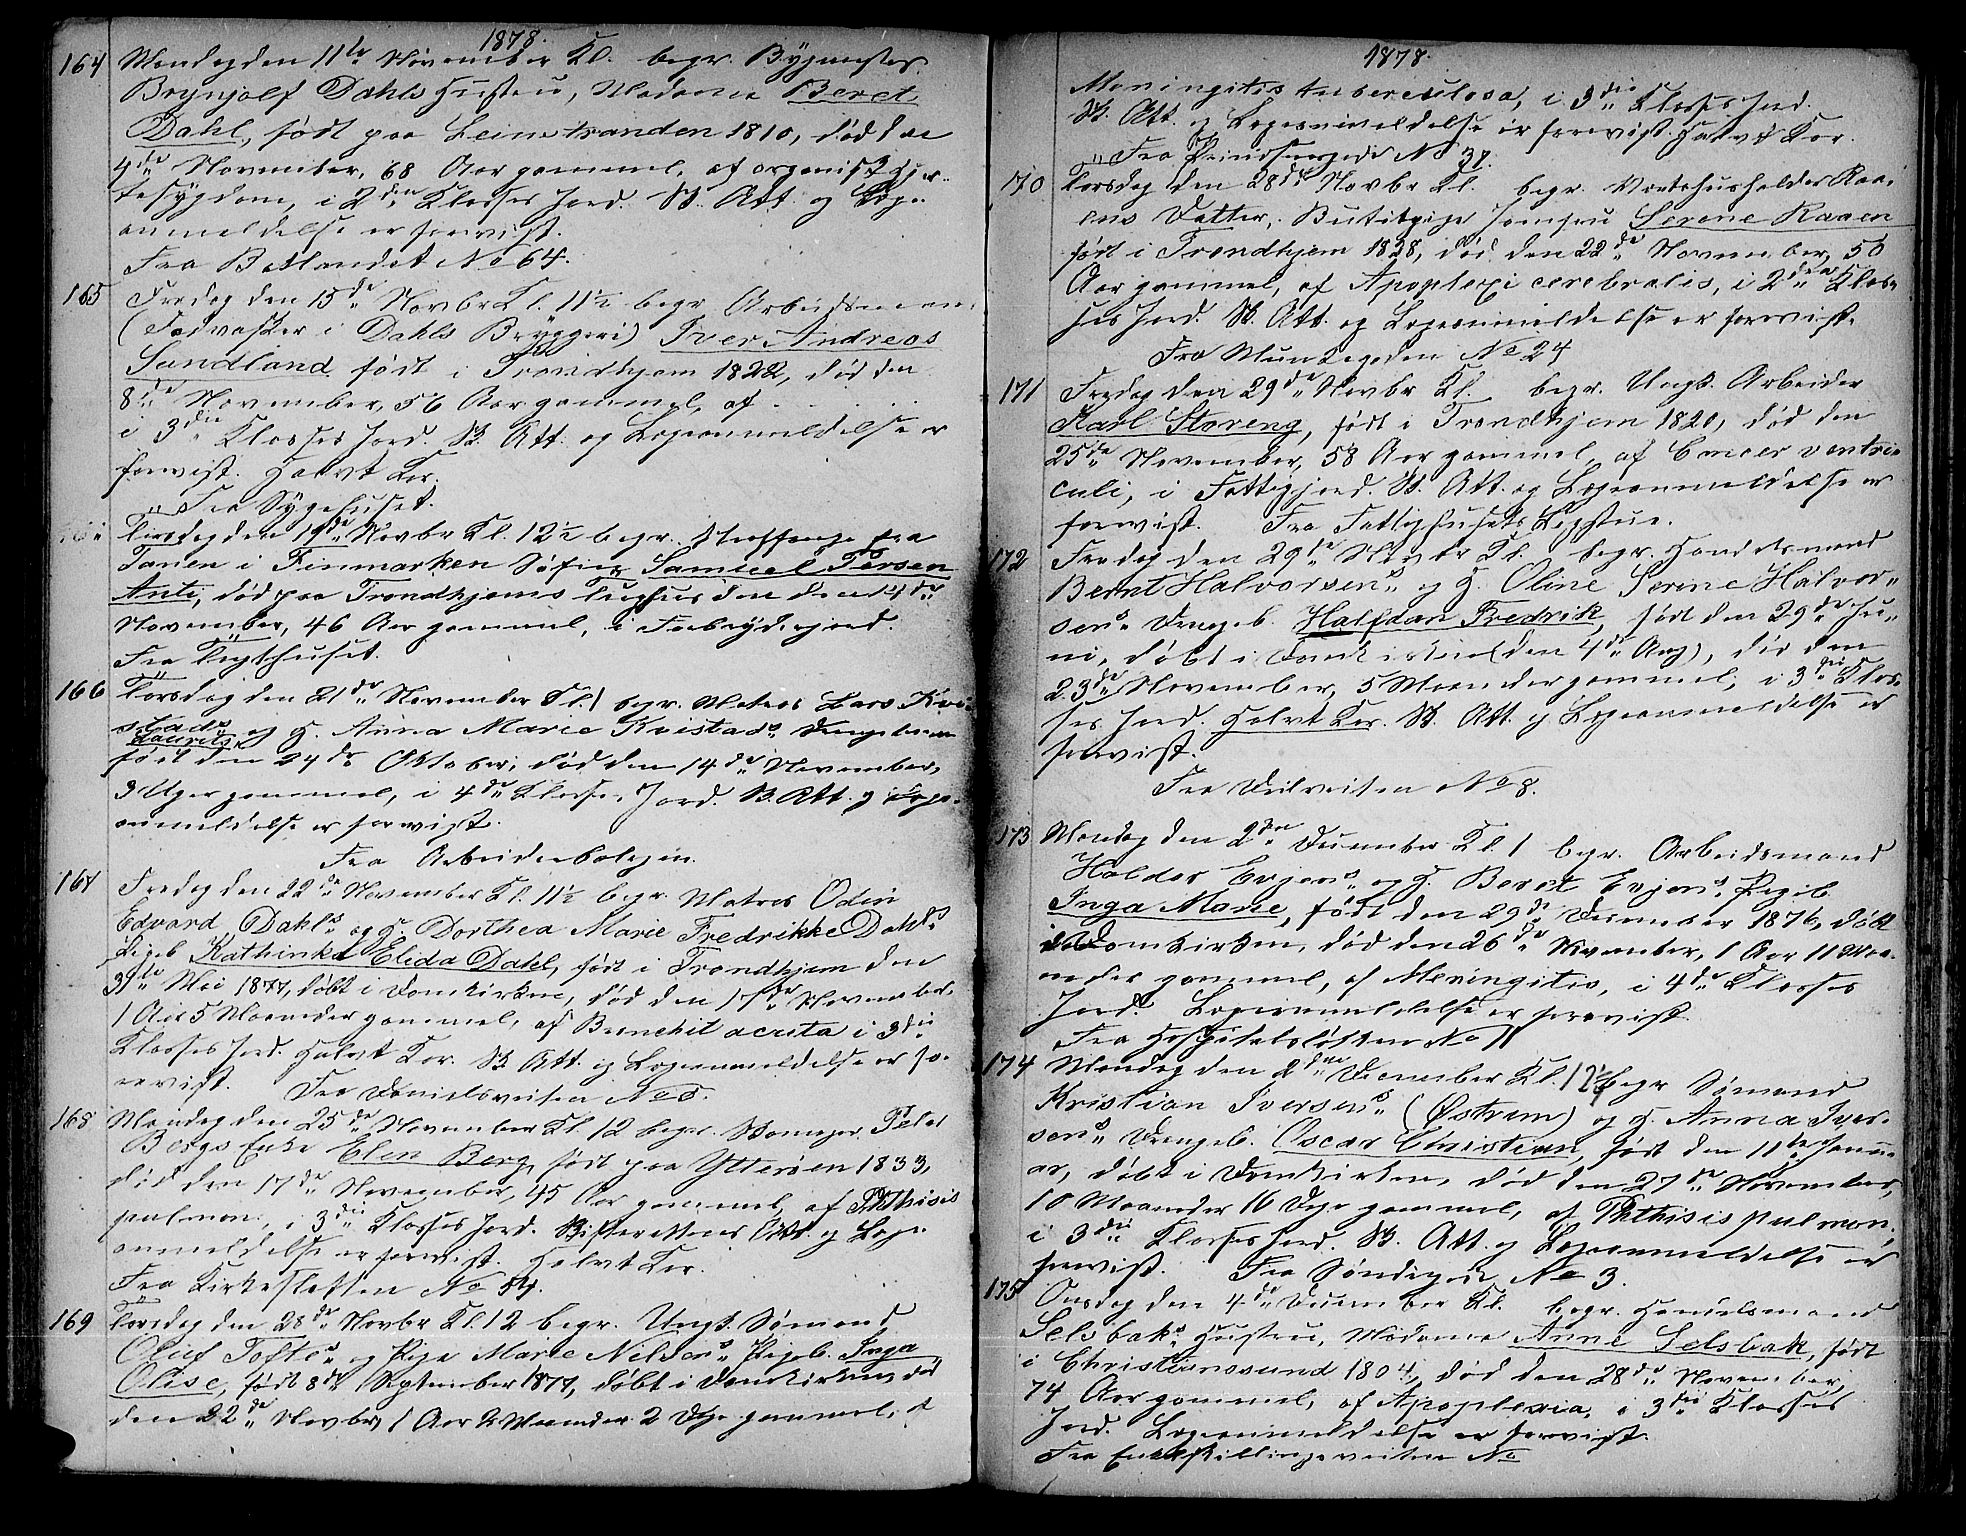 1878.
164 Mandag den 11te November Kl. begr. Bygmester
Brynjolf Dahls Hustru, Madame Beret
Dahl, født paa Leinstranden 1810, død den
4de November, 68 Aar gammel, af organisk Hjer-
tesygdom, i 2den Klasses Jord. Sk. Att. og Læge-
anmeldelse er forevist.
Fra Baklandet No 64.
165 Fredag den 15de Novbr Kl. 11½ begr. Arbeidsmand
(Fadvasker i Dahls Bryggeri) Iver Andreas
Sundland født i Trondhjem 1822, død den
8de November, 56 Aar gammel, af . . . . .
i 3die Klasses Jord. Sk. Att. og Lægeanmeldelse er
forevist. Halvt Kor.
Fra Sygehuset.
Tirsdag den 19de Novbr Kl. 12½ begr. Straffange fra
Tanen i Finmarken Søfin Samuel Persen
Anti, død paa Trondhjems Tugthus den
November, 46 Aar gammel, i Forbryderjord.
Fra Tugthuset.
166 Torsdag den 21de November Kl. 1 begr. Matros Lars Kvi-
stads og H. Anna Marie Kvistads Drengebarn
Laurits
født den 24de Oktober, død den 14de November,
3 Uger gammel, i 4de Klasses Jord. Sk. Att. og Læge-
anmeldelse er forevist.
Fra Arbeiderboligen.
167 Fredag den 22de November Kl. 11½ begr. Matros Odin
Edvard Dahls og H. Dorthea Marie Fredrikke Dahls
Pigeb. Kathinka Elida Dahl, født i Trondhjem den
31te Mai 1877, døbt i Domkirken, død den 17de November,
1 Aar 5 Maaneder gammel, af Bronchit acuta i 3die
Klasses Jord. Halvt Kor. Sk. Att. og Lægeanmeldelse er fo-
revist. Fra Danielsveiten No 5.
168 Mandag den 25de November Kl. 12 begr. Skomager Peter
Bergs Enke Elen Berg, født paa Ytterøen 1833,
død den 17de November, 45 Aar gammel, af Phthisis
pulmon., i 3die Klasses Jord. Skifterettens Att. og Læge-
anmeldelse er forevist. Halvt Kor.
Fra Kirkesletten No
169 Torsdag den 28de Novbr Kl. 12 begr. Ungk. Sømand
Oluf Toftes og Pige Marie Nilsens Pigeb. Inga
Olise, født 8de September 1877, døbt i Domkirken, død
den 22de Novbr, 1 Aar 2 Maaneder 2 Dge gammel, af
1878.
Meningitis tuberculosa, i 3die Klasses Jord.
Sk. Att. og Lægeanmeldelse er forevist. Halvt Kor.
Fra Prindsensgade No 37.
170 Torsdag den 28de Novbr Kl. begr. Vertshusholder Raa-
ens Datter, Butikpige Jomfru Serene Raaen
født i Trondhjem 1828, død den 22de November, 50
Aar gammel, af Apoplexi cerebralis, i 2den Klas-
ses Jord. Sk. Att. og Lægeanmeldelse er forevist.
Fra Munkegaden No 24
171 Fredag den 29de Novbr Kl. begr. Ungk. Arbeider
Karl Storeng, født i Trondhjem 1820, død den
25de November, 58 Aar gammel, af Cancer ventri-
culi, i Fattigjord. Sk. Att. og Lægeanmeldelse er
forevist. Fra Fattighusets Lægstue.
172 Fredag den 29de Novbr Kl. begr. Handelsmand
Bernt Halvorsens og H. Oline Serene Halvor-
sens Drengeb. Halfdan Fredrik, født den 29de Ju-
ni, døbt i Domkirken (den 4de Aug), død den
23de November, 5 Maaneder gammel, i 3die Klas-
ses Jord. Halvt Kor. Sk. Att. og Lægeanmeldelse er
forevist.
Fra No 8.
173 Mandag den 2den December Kl. 1 begr. Arbeidsmand
Haldor Evjens og H. Beret Evjens Pigeb.
Inga Marie, født den 29de December 1876, døbt
i Domkirken, død den 26de November, 1 Aar 11 Maa-
neder gammel, af Meningitis, i 4de Klasses
Jord. Lægeanmeldelse er forevist.
Fra Hospitalsløkken No 11
174 Mandag den 2den December Kl. 12½ begr. Sømand
Kristian Iversens (Østrem) og H. Anna Iver-
sens Drengeb. Oscar Christian, født den 11te Janu-
ar, døbt i Domkirken, død den 27de November,
10 Maaneder 16 Dge gammel, af Phthisis pulmon.,
i 3die Klasses Jord. Sk. Att. og Lægeanmeldelse er
forevist. Fra Søndregade No 3.
175 Onsdag den 4de December Kl. begr. Handelsmand
Selsbaks Hustru, Madame Anne Selsbak, født
i Christianssund 1804, død den 28de November,
74 Aar gammel, af Apoplexia, i 3die Klasses
Jord. Lægeanmeldelse er forevist.
Fra Enkeltskillingsveiten No